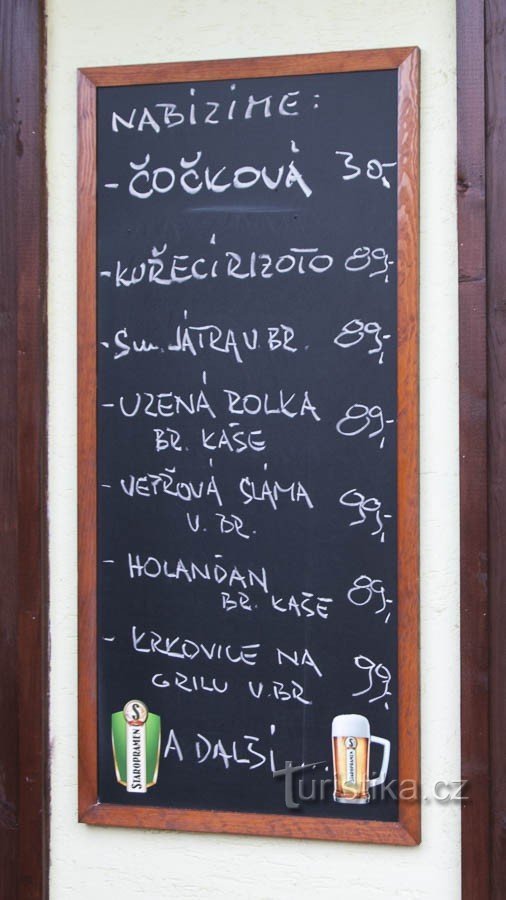 NABIZÍME:
- ČOČKOVÁ 30,-
- KUŘECÍ RIZOTO 89,-
- SM. JÁTRA V. BR. 89,-
- UZENÁ ROLKA 89,-
BR. KAŠE
- VEPŘOVÁ SLÁMA 99,-
V. BR.
- HOLANĎAN 89,-
BR. KAŠE
- KRKOVICE NA 99,-
GRILU V. BR
A DALŠÍ...
S
STAROPRAMEN
STAROPRAMEN
Turistika.cz